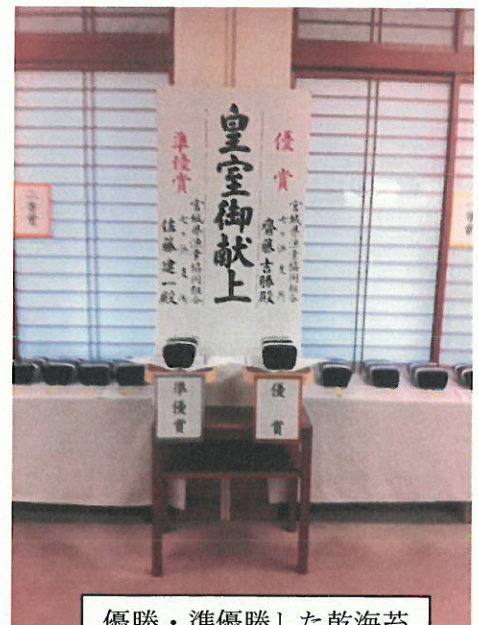 優賞
宮城県漁業協同組合
七ヶ浜支所
齋藤吉勝殿
皇室御献上
準優賞
宮城県漁業協同組合
七ヶ浜支所
佐藤建一殿
準優賞
優賞
優勝・準優勝した乾海苔